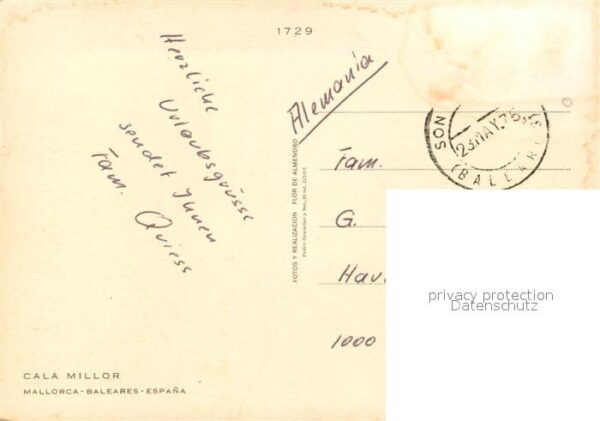 1729
Herzliche
Urlaubsgrüsse
sendet Ihnen
Fam. Quiess
CALA MILLOR
MALLORCA-BALEARES-ESPAÑA
FOTOS Y REALIZACION FLOR DE ALMENDRO
Alemania
SON
23.MAY.75
(BALEAR
Fam.
G.
Hav
1000
privacy protection
Datenschutz